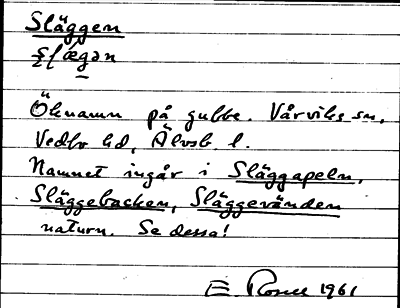 Släggen
slægan
Öknamn på gubbe. Vårviks sn,
Vedbo hd, Älvsb. l.
Namnet ingår i Släggapeln,
Släggebacken, Släggevänden
naturn. Se dessa!
E Rosell 1961